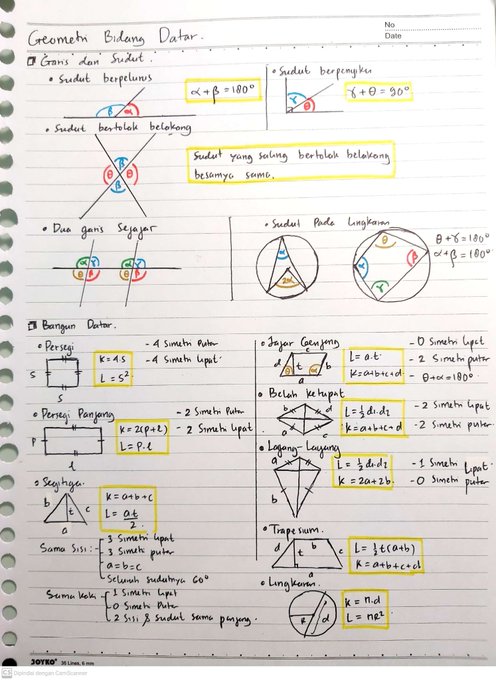 No
Date
Geometri Bidang Datar.
Garis dan Sudut.
• Sudut berpelurus
β α
α + β = 180°
• Sudut berpenyiku
γ θ
γ + θ = 90°
• Sudut bertolak belakang
β
θ θ
β
Sudut yang saling bertolak belakang
besarnya sama.
• Dua garis Sejajar
α γ α γ
θ β θ β
• Sudut Pada Lingkaran
α
2α
θ
α β
γ
θ + γ = 180°
α + β = 180°
Bangun Datar.
• Persegi
s
s
K = 4s
L = s²
- 4 Simetri Putar
- 4 Simetri Lipat
• Persegi Panjang
P
l
K = 2(p+l)
L = P.l
- 2 Simetri Putar
- 2 Simetri Lipat
• Segitiga
b t c
a
K = a+b+c
L = at/2
Sama Sisi :
- 3 Simetri Lipat
3 Simetri putar
a = b = c
Seluruh sudutnya 60°
Sama kaki
1 Simetri Lipat
0 Simetri Putar
2 Sisi & Sudut Sama panjang.
• Jajar Genjang
c
d θ t α b
a
L = a.t
K = a+b+c+d
- 0 Simetri Lipat
- 2 Simetri putar
- θ + α = 180°
• Belah Ketupat
b d
a c
L = ½ d1.d2
K = a+b+c+d
- 2 Simetri Lipat
- 2 Simetri putar
• Layang-Layang
a
b
L = ½ d1.d2
K = 2a + 2b
- 1 Simetri Lipat
- 0 Simetri putar
• Trapesium.
d t b c
a
L = ½ t (a+b)
K = a+b+c+d
• Lingkaran
R d
K = π.d
L = πR²
JOYKO 35 Lines, 6 mm
CS Dipindai dengan CamScanner